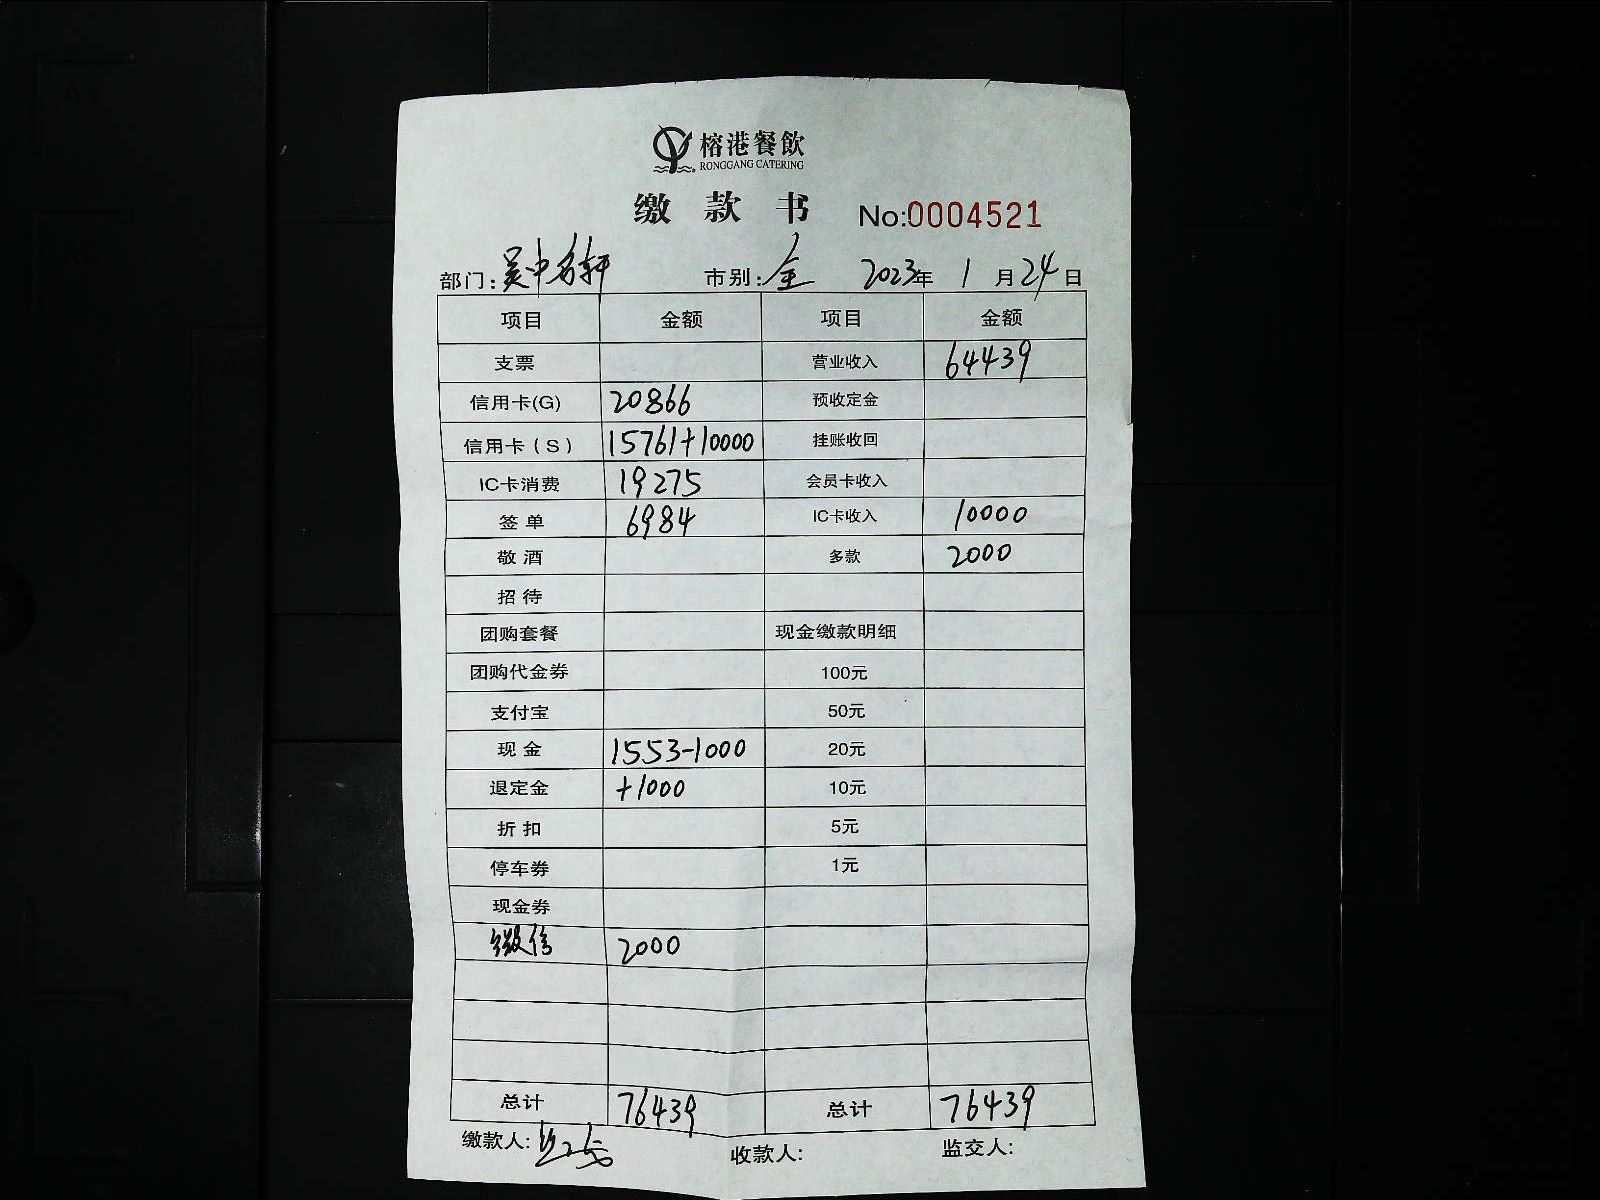 榕港餐飲
RONGGANG CATERING
缴款书 No:0004521
部门:吴中名轩 市别:全 2023年1月24日
项目 金额 项目 金额
支票 营业收入 64439
信用卡(G) 20866 预收定金
信用卡(S) 15761+10000 挂账收回
IC卡消费 19275 会员卡收入
签单 6984 IC卡收入 10000
敬酒 多款 2000
招待
团购套餐 现金缴款明细
团购代金券 100元
支付宝 50元
现金 1553-1000 20元
退定金 +1000 10元
折扣 5元
停车券 1元
现金券
微信 2000
总计 76439 总计 76439
缴款人: 收款人: 监交人: